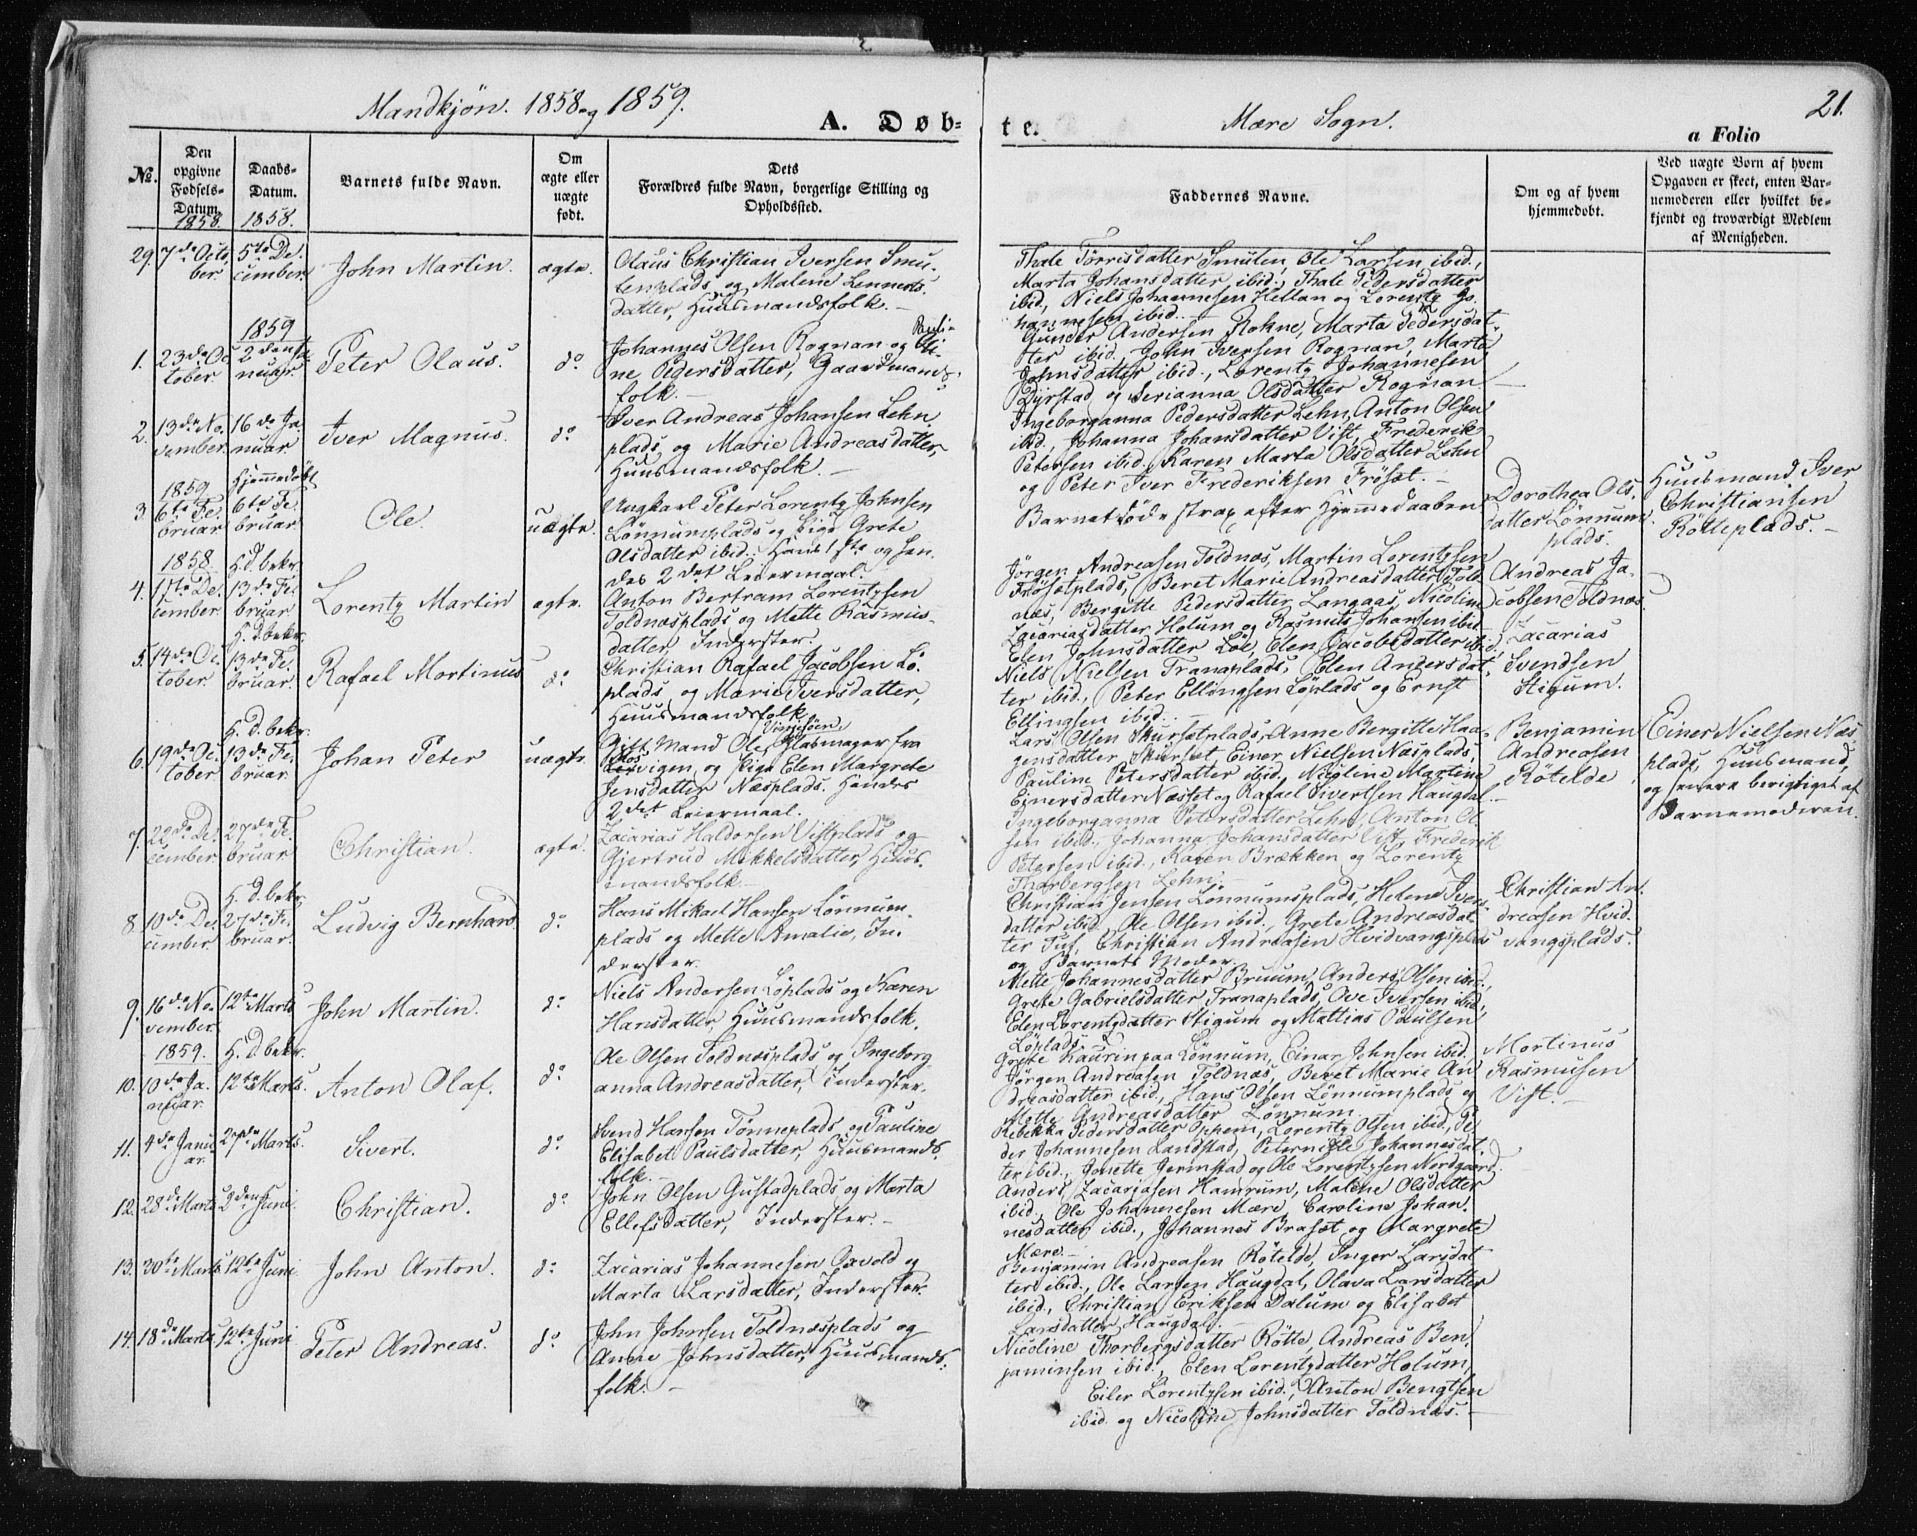 Mandkjøn. 1858 og 1859.
A. Døb-
te.
Mære Sogn.
21.
a Folio
No.
Den opgivne Fødsels-Datum.
1858.
Daabs-Datum.
1858.
Barnets fulde Navn.
Om ægte eller uægte født.
Dets
Forældres fulde Navn, borgerlige Stilling og
Opholdssted.
Faddernes Navne.
Om og af hvem
hjemmedøbt.
Ved uægte Børn af hvem
Opgaven er skeet, enten Bar-
nemoderen eller hvilket be-
kjendt og troværdigt Medlem
af Menigheden.
29. 7de Octo-
ber
5te De-
cember
John Martin.
ægte.
Olaus Christian Iversen Smu-
lenplads og Malene Lennerts-
datter, Huusmandsfolk. -
Thale Torrisdatter Smulen, Ole Larsen ibid.,
Marta Johansdatter ibid., Thale Pedersdatter
ibid., Niels Johannesen Hellan og Lorentz Jo-
hannesen ibid. -
1. 23de Oc-
tober.
1859
2den Ja-
nuar.
Peter Olaus.
do
Johannes Olsen Rognan og Pauli-
ne Pedersdatter, Gaardmands-
folk. -
Gunder Andersen Rohne, Marta Pedersdat-
ter ibid., John Iversen Rognan, Marta
Johnsdatter ibid., Lorentz Johannesen
Dyrstad og Serianna Olsdatter Rognan
2. 13de No-
vember.
16de Ja-
nuar.
Iver Magnus.
do
Iver Andreas Johansen Lehn-
plads og Marie Andreasdatter,
Huusmandsfolk. -
Ingeborganna Pedersdatter Lehn, Anton Olsen
ibid., Johanna Johansdatter Vist, Frederik
Petersen ibid., Karen Marta Olsdatter Lehn
og Peter Iver Frederiksen Frøset. -
3. 1859
6te Fe-
bruar
Hjemmedøbt
6te Fe-
bruar
Ole.
uægte.
Ungkarl Peter Lorentz Johnsen
Lønnumplads og Pige Grete
Olsdatter ibid. Hans 1ste og hen-
des 2det Leiermaal.
Barnet døde strax efter Hjemmedaaben
Dorothea Ols-
datter Lønnum-
plads.
Huusmand Iver
Christiansen
Rötteplads. -
4. 1858.
17de De-
cember
H. D. bekr.
13de Fe-
bruar
Lorentz Martin
ægte.
Anton Bertram Lorentzsen
Toldnæsplads og Mette Rasmus-
datter, Inderster.
Jørgen Andreasen Toldnæs, Martin Lorentzsen
Frøsetplads, Beret Marie Andreasdatter Told-
næs, Bergitte Pedersdatter Langaas, Nicoline
Zacariasdatter Holum og Rasmus Johansen ibid.
Andreas Ja-
cobsen Toldnæs
5. 14de Oc-
tober.
H. D. bekr.
13de Fe-
bruar.
Rafael Mortinus
do
Christian Rafael Jacobsen Lø-
plads og Marie Iversdatter,
Huusmandsfolk.
Elen Johnsdatter Løe, Elen Jacobsdatter ibid.,
Niels Nielsen Tranaplads, Elen Andersdat-
ter ibid., Peter Ellingsen Løplads og Ernst
Ellingsen ibid.
Zacarias
Svendsen
Stigum.
6. 19de Oc-
tober
H. D. bekr.
13de Fe-
bruar.
Johan Peter
uægte.
Gift Mand Ole Glasmager fra
og Pige Elen Margrete
Jensdatter Næsplads. Hendes
2det Leiermaal.
Lars Olsen Skursetplads, Anne Bergitte Haa-
gensdatter Skurset, Einer Nielsen Næsplads,
Pauline Petersdatter ibid., Nicoline Martine
Einersdatter Næsset og Rafael Sivertsen Haugdal.
Benjamin
Andreasen
Rötelde
Einer Nielsen Næs-
plads, Huusmand,
og senere berigtiget af
Barnemoderen.
7. 22de De-
cember
27de Fe-
bruar.
Christian.
ægte.
Zacarias Haldorsen Vistplads og
Gjertrud Mikkelsdatter, Huus-
mandsfolk. -
Ingeborganna Petersdatter Lehn, Anton Ol-
sen ibid., Johanna Johansdatter Vist, Frederik
Petersen ibid., Karen Brækken og Lorentz
Thorbergsen Lehn. -
8. 10de De-
cember
H. D. bekr.
27de Fe-
bruar.
Ludvig Bernhard
do
Hans Mikael Hansen Lønnum-
plads og Mette Amalie, In-
derster.
Christian Jensen Lønnumsplads, Helene Ivers-
datter ibid., Ole Olsen ibid., Grete Andreasdat-
ter Tuf, Christian Andreasen Hvidvangsplads
og Barnets Moder.
Christian An-
dreasen Hvid-
vangsplads.
9. 16de No-
vember.
12te Marts
John Martin.
do
Niels Andersen Løplads og Karen
Hansdatter, Huusmandsfolk.
Mette Johannesdatter Bruum, Anders Olsen ibid.,
Grete Gabrielsdatter Tranaplads, Ove Iversen ibid.,
Elen Lorentzdatter Stigum og Mattias Paulsen
Løplads.
10. 1859.
10de Ja-
nuar.
H. D. bekr.
12te Marts.
Anton Olaf.
do
Ole Olsen Toldnæsplads og Ingeborg-
anna Andreasdatter, Inderster.
Grete Kaurin paa Lønnum, Einar Johnsen ibid.,
Jørgen Andreasen Toldnæs, Beret Marie An-
dreasdatter ibid., Hans Olsen Lønnumplads og
Mette Andreasdatter Lønnum.
Mortinus
Rasmusen
Vist. -
11. 4de Janu-
ar.
27de Marts.
Sivert.
do
Svend Hansen Tønneplads og Pauline
Elisabet Paulsdatter, Huusmands-
folk. -
Rebekka Pedersdatter Ophem, Lorentz Olsen ibid., Pe-
der Johannesen Landstad, Peternille Johannesdat-
ter ibid., Jonette Jerinstad og Ole Lorentzsen Nordgaard.
12. 28de Marts
2den Juni.
Christian.
do
John Olsen Gustadplads og Marta
Ellefsdatter, Inderster. -
Anders Zacariasen Hamrum, Malene Olsdatter
ibid., Ole Johannesen Mære, Caroline Johan-
nesdatter ibid., Johannes Braset og Margrete
Mære. -
13. 30te Marts
12te Juni
John Anton.
do
Zacarias Johannesen Oxvold og
Marta Larsdatter, Inderster.
Benjamin Andreasen Rötelde, Inger Larsdat-
ter ibid., Ole Larsen Haugdal, Olava Larsdatter
ibid., Christian Eriksen Dalum og Elisabet
Larsdatter Haugdal. -
14. 18de Marts
12te Juni
Peter Andreas.
do
John Johnsen Toldnæsplads og
Anne Johnsdatter, Huusmands-
folk. -
Nicoline Thorbergsdatter Rötte, Andreas Ben-
jaminsen ibid., Elen Lorentzdatter Holum,
Eiler Lorentzsen ibid., Anton Bengtsen
ibid. og Nicoline Johnsdatter Toldnæs. -